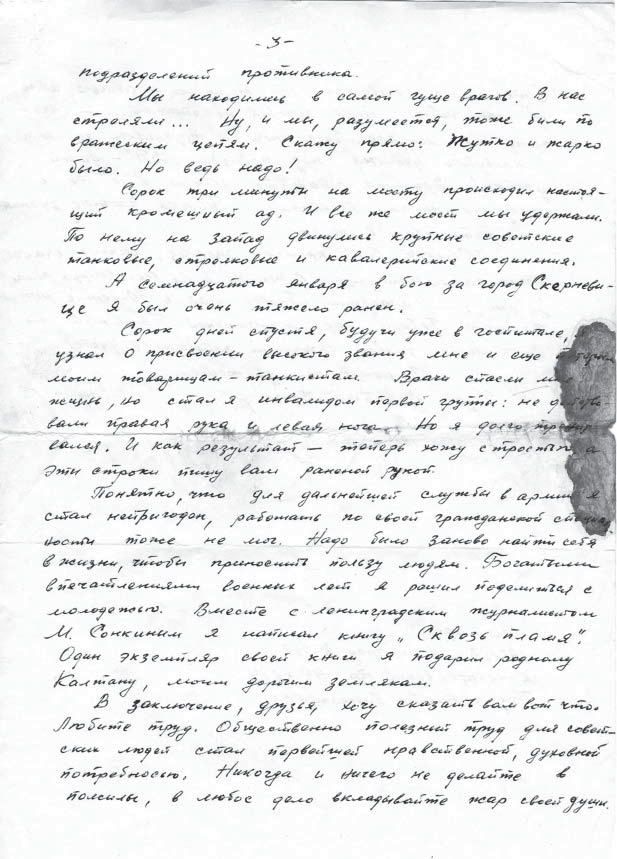 -3-
подразделений противника.
Мы находились в самой гуще врагов. В нас
стреляли... Ну, и мы, разумеется, тоже били по
вражеским целям. Скажу прямо: Жутко и жарко
было. Но ведь надо!
Сорок три минуты на мосту происходил настоя-
щий кромешный ад. И все же мост мы удержали.
По нему на Запад двинулись крупные советские
танковые, стрелковые и кавалерийские соединения.
А семнадцатого января в бою за город Скерневи-
це я был очень тяжело ранен.
Сорок дней спустя, будучи уже в госпитале,
узнал о присвоении высокого звания мне и еще
моим товарищам-танкистам. Врачи спасли
жизнь, но стал я инвалидом первой группы: не
вали правая рука и левая нога. Но я долго
вался. И как результат — теперь хожу с тростью, а
эти строки пишу вам раненой рукой.
Понятно, что для дальнейшей службы в армии я
стал непригоден, работать по своей гражданской
ности тоже не мог. Надо было заново найти себя
в жизни, чтобы приносить пользу людям. Богатыми
впечатлениями военных лет я решил поделиться с
молодежью. Вместе с ленинградским журналистом
М. Сонкиным я написал книгу „Сквозь пламя".
Один экземпляр своей книги я подарил родному
Калтану, моим дорогим землякам.
В заключение, друзья, хочу сказать вам вот что.
Любите труд. Общественно полезный труд для совет-
ских людей стал первейшей нравственной, духовной
потребностью. Никогда и ничего не делайте в
полсилы, в любое дело вкладывайте жар своей души.